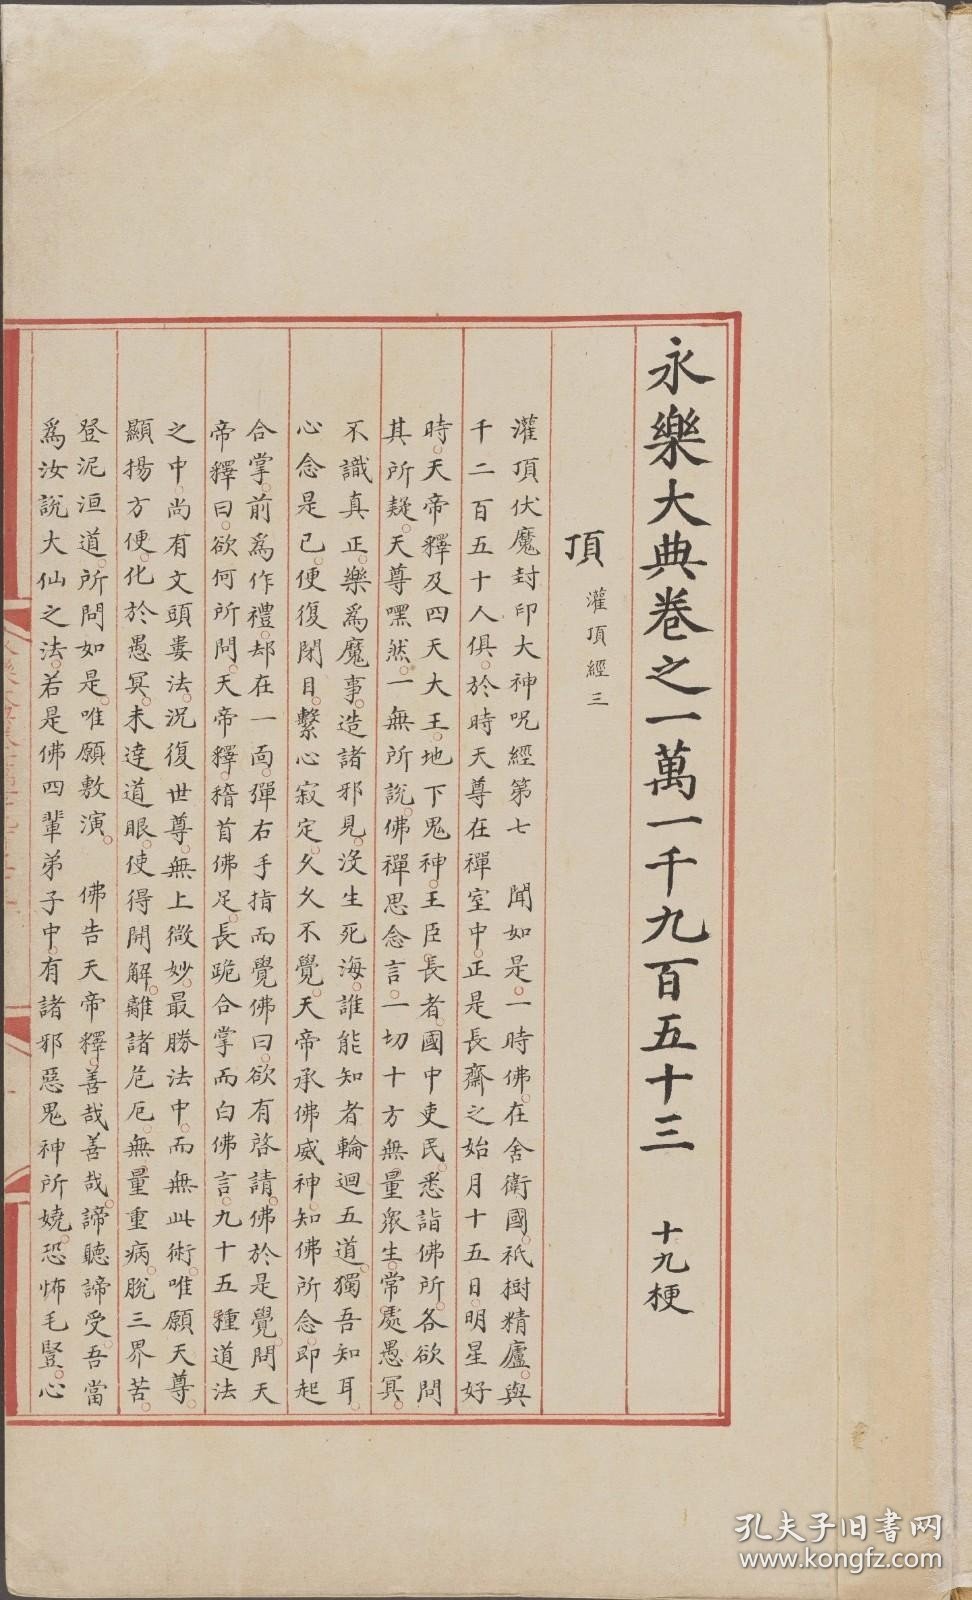 永樂大典卷之一萬一千九百五十三　十九梗
頂　灌頂經三
灌頂伏魔封印大神呪經第七　聞如是。一時佛。在舍衛國。祇樹精廬。與
千二百五十人俱。於時天尊在禪室中。正是長齋之始月十五日。明星好
時。天帝釋及四天大王。地下鬼神。王臣。長者。國中吏民。悉詣佛所。各欲問
其所疑。天尊嘿然。一無所說。佛禪思念言。一切十方無量衆生。常處愚冥。
不識真正。樂為魔事。造諸邪見。沒生死海。誰能知者輪迴五道。獨吾知耳。
心念是已。便復閉目。繫心寂定。久久不覺。天帝承佛威神。知佛所念。即起
合掌。前為作禮。却在一面。彈右手指而覺佛曰。欲有啓請。佛於是覺。問天
帝釋曰。欲何所問。天帝釋。稽首佛足。長跪合掌而白佛言。九十五種道法
之中。尚有文頭婁法。況復世尊。無上微妙。最勝法中。而無此術。唯願天尊。
顯揚方便。化於愚冥。未達道眼。使得開解。離諸危厄。無量重病。脫三界苦。
登泥洹道。所問如是。唯願敷演。　佛告天帝釋。善哉善哉。諦聽諦受。吾當
為汝說大仙之法。若是佛四輩弟子中。有諸邪惡鬼神所嬈。恐怖毛豎。心
孔夫子旧書网
www.kongfz.com